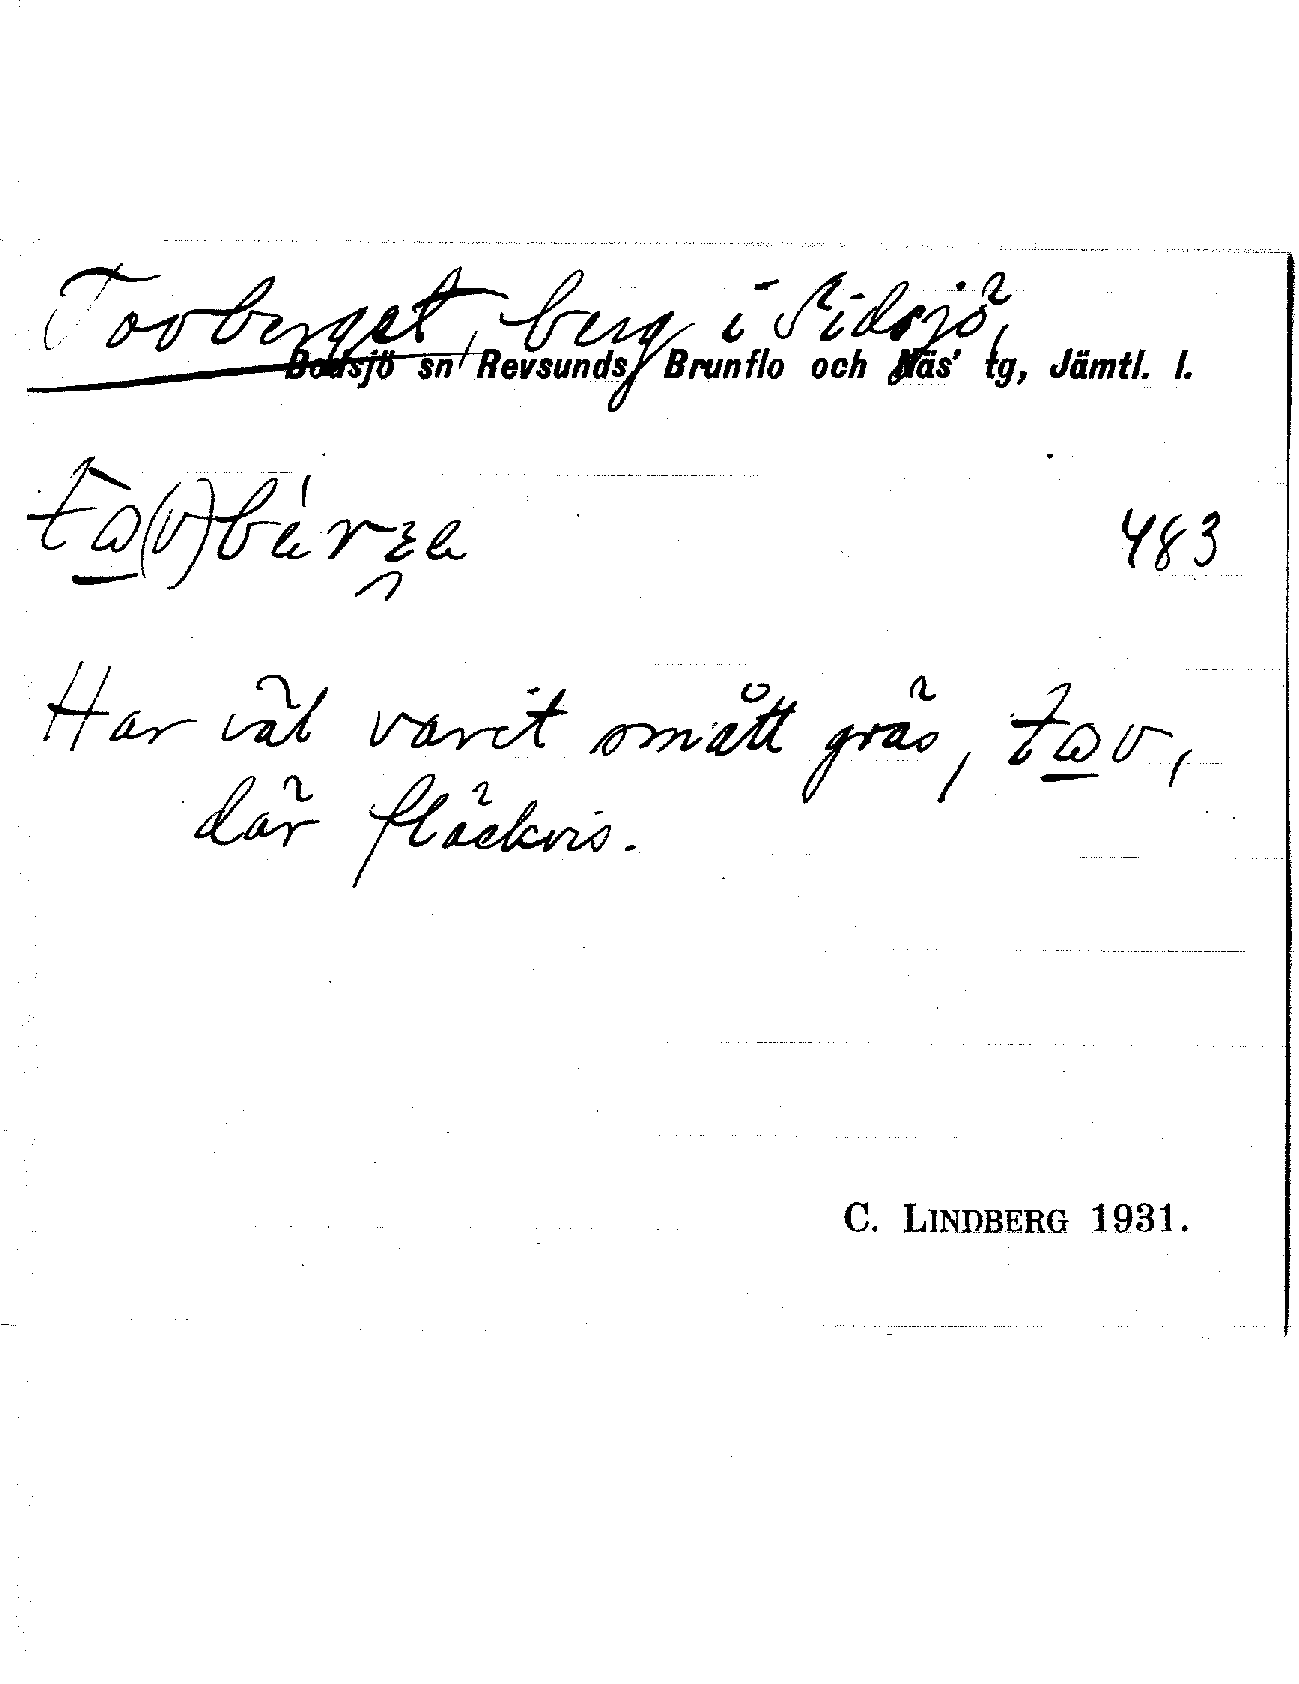 Tovberget, berg i Sidsjö,
Bodsjö sn, Revsunds, Brunflo och Näs' tg, Jämtl. l.
483
Har väl varit smått gräs, tωv,
där fläckvis.
C. LINDBERG 1931.